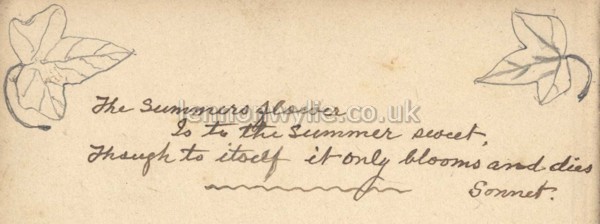 The Summers flower
lennonwylie.co.uk
Is to the Summer sweet,
Though to itself it only blooms and dies
Sonnet.